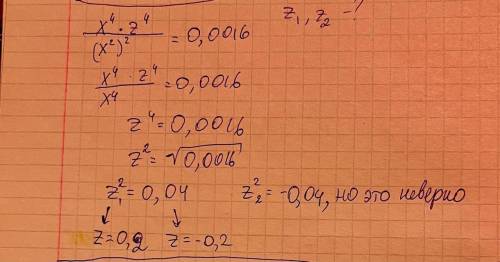 z₁, z₂ -?
x⁴ · z⁴ / (x²)² = 0,0016
x⁴ · z⁴ / x⁴ = 0,0016
z⁴ = 0,0016
z² = √0,0016
z₁² = 0,04 z₂² = -0,04, но это неверно
↓ ↓
z = 0,2 z = -0,2